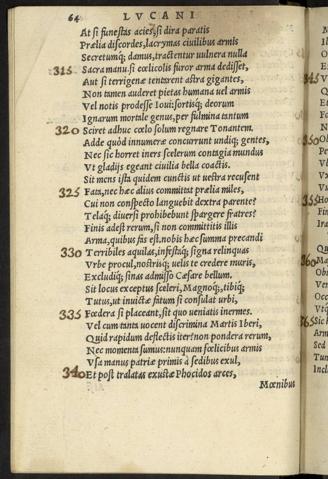 64 LVCANI
At si funestas acies, si dira paratis
Prælia discordes, lacrymas ciuilibus armis
Secretumq́; damus, tractentur uulnera nulla
315 Sacra manu. si cœlicolis furor arma dedisset,
Aut si terrigenæ tentarent astra gigantes,
Non tamen auderet pietas humana uel armis
Vel notis prodesse Ioui: sortisq́; deorum
Ignarum mortale genus, per fulmina tantum
320 Sciret adhuc cœlo solum regnare Tonantem.
Adde quòd innumeræ concurrunt undiq; gentes,
Nec sic horret iners scelerum contagia mundus
Vt gladijs egeant ciuilia bella coactis.
Sit mens ista quidem cunctis ut uestra recusent
325 Fata, nec hæc alius committat prælia miles,
Cui non conspecto languebit dextra parente?
Telaq́; diuersi prohibebunt spargere fratres?
Finis adest rerum, si non committitis illis
Arma, quibus fas est. nobis hæc summa precandi
330 Terribiles aquilas, infestaq́; signa relinquas
Vrbe procul, nostrisq́; uelis te credere muris,
Excludiq́; sinas admisso Cæsare bellum.
Sit locus exceptus sceleri, Magnoq́;, tibiq́;
Tutus, ut inuictæ fatum si consulat urbi,
335 Fœdera si placeant, sit quo ueniatis inermes.
Vel cum tanta uocent discrimina Martis Iberi,
Quid rapidum deflectis iter? non pondera rerum,
Nec momenta sumus: nunquam fœlicibus armis
Vsa manus patriæ primis à sedibus exul,
340 Et post tralatas exustæ Phocidos arces,
Mœnibus